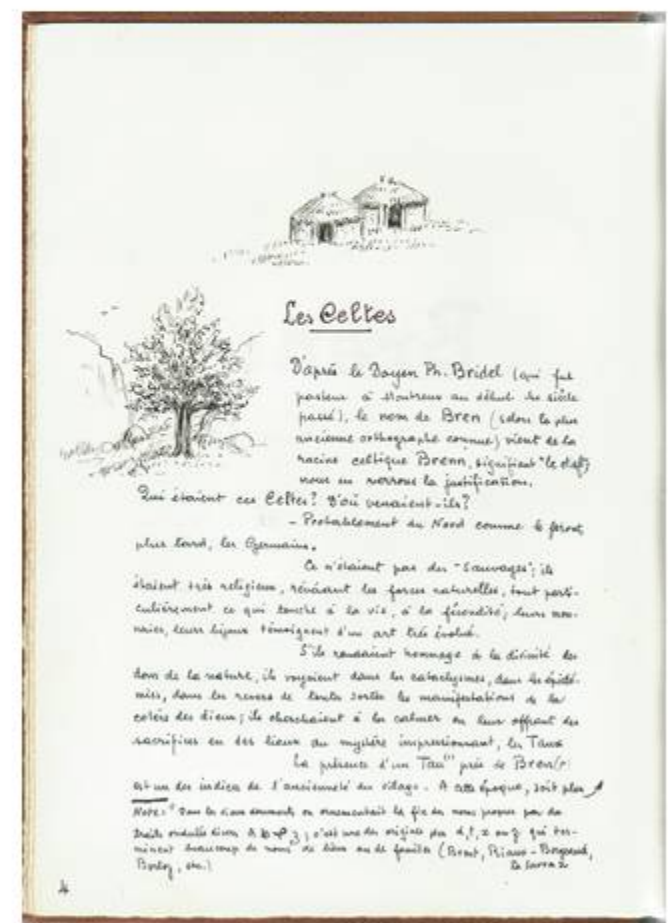 Les Celtes
D'après le Doyen Ph. Bridel (qui fut
pasteur à Montreux au début du siècle
passé), le nom de Bren (selon la plus
ancienne orthographe connue) vient de la
racine celtique Brenn, signifiant "le chef",
nous en verrons la justification.
Qui étaient ces Celtes? D'où venaient-ils?
- Probablement du Nord comme le feront,
plus tard, les Germains.
Ce n'étaient pas des "Sauvages"; ils
étaient très religieux, révérant les forces naturelles, tout parti-
culièrement ce qui touche à la vie, à la fécondité; leurs mon-
naies, leurs bijoux témoignent d'un art très évolué.
S'ils rendaient hommage à la divinité des
dons de la nature, ils voyaient dans les cataclysmes, dans les épidé-
mies, dans les revers de toutes sortes les manifestations de la
colère des dieux; ils cherchaient à les calmer en leur offrant des
sacrifices en des lieux au mystère impressionnant, les Taux
La présence d'un Tau près de Bren(*)
est un des indices de l'ancienneté du village. A cette époque, soit plus
Note: * Dans les vieux documents on ornementait la fin des noms propres par des
traits ondulés divers ; c'est une des origines des d, t, x ou z qui ter-
minent beaucoup de noms de lieux ou de familles (Brent, Riaux - Borgeaud,
Borloz, etc.) La Sarraz
4